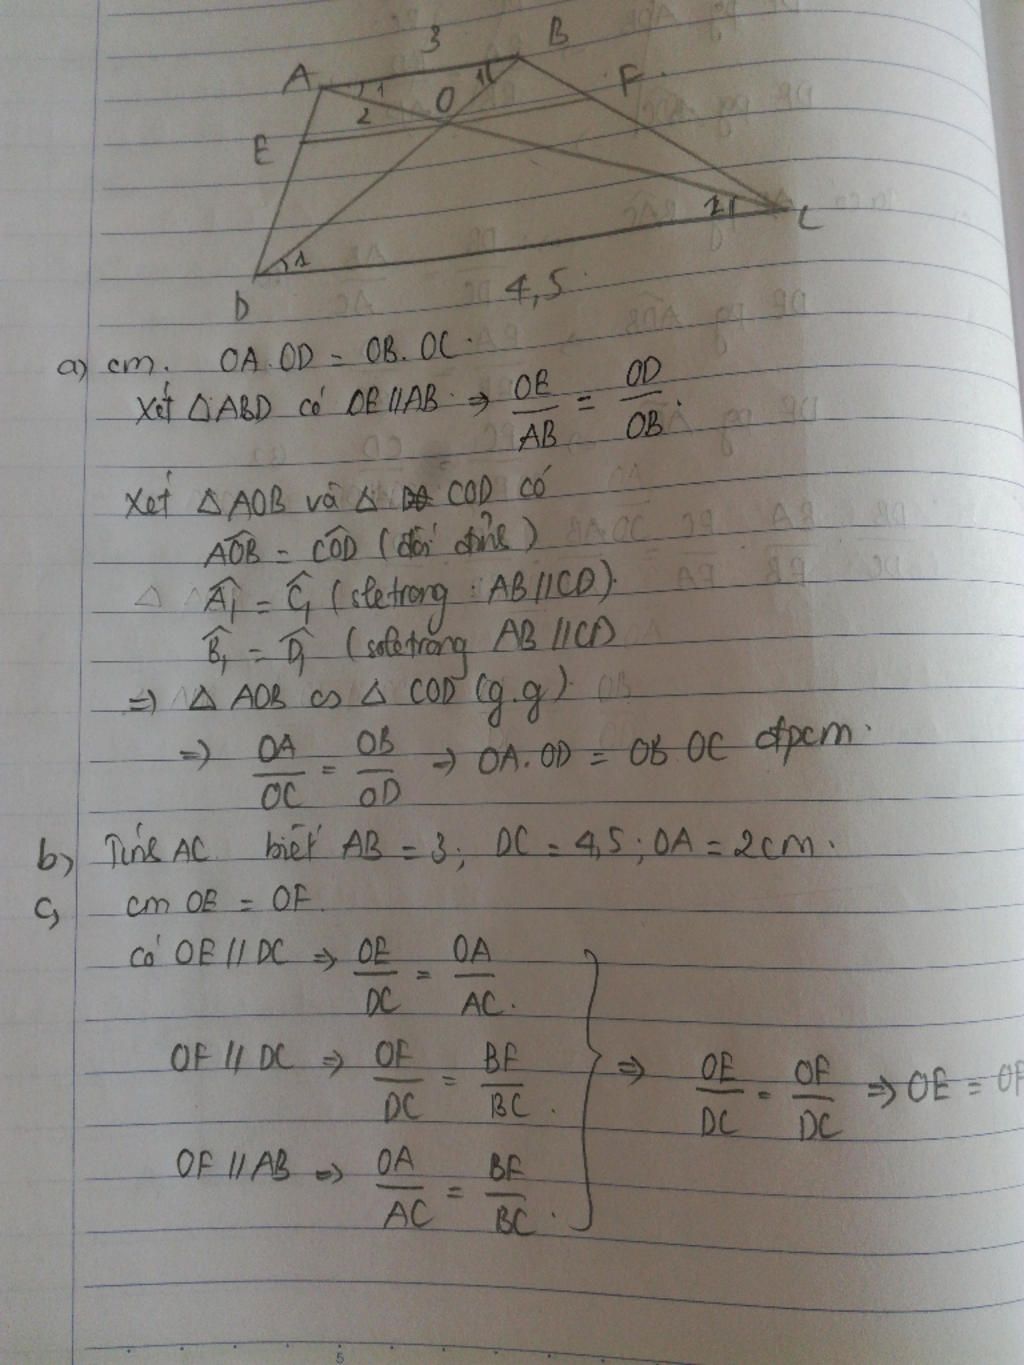 3
A
B
1
1
2
O
F
E
1
C
1
D
4,5
a) cm. OA.OD = OB.OC.
Xét △ABD có OE//AB. ⇒ OE/AB = OD/OB.
Xét △AOB và △ COD có
AÔB = CÔD (đối đỉnh)
Â₁ = Ĉ₁ (sletrong : AB//CD).
B̂₁ = D̂₁ (soletrong AB//CD
⇒ △ AOB ∽ △ COD (g.g)
⇒ OA/OC = OB/OD ⇒ OA.OD = OB.OC đpcm.
b) Tính AC biết AB = 3; DC = 4,5; OA = 2cm.
c, cm OE = OF.
có OE // DC ⇒ OE/DC = OA/AC.
OF // DC ⇒ OF/DC = BF/BC.
⇒ OE/DC = OF/DC ⇒ OE = OF
OF // AB ⇒ OA/AC = BF/BC.
5